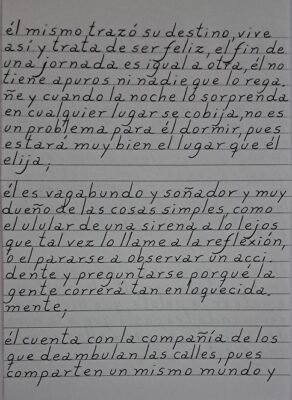 él mismo trazó su destino, vive
así y trata de ser feliz, el fin de
una jornada es igual a otra, él no
tiene apuros ni nadie que lo rega.
ñe y cuando la noche lo sorprenda
en cualquier lugar se cobija, no es
un problema para él dormir, pues
estará muy bien el lugar que él
elija;
él es vagabundo y soñador y muy
dueño de las cosas simples, como
el ulular de una sirena a lo lejos
que tal vez lo llame a la reflexión,
o el pararse a observar un acci.
dente y preguntarse porqué la
gente correrá tan enloquecida.
mente;
él cuenta con la compañía de los
que deambulan las calles, pues
comparten un mismo mundo y